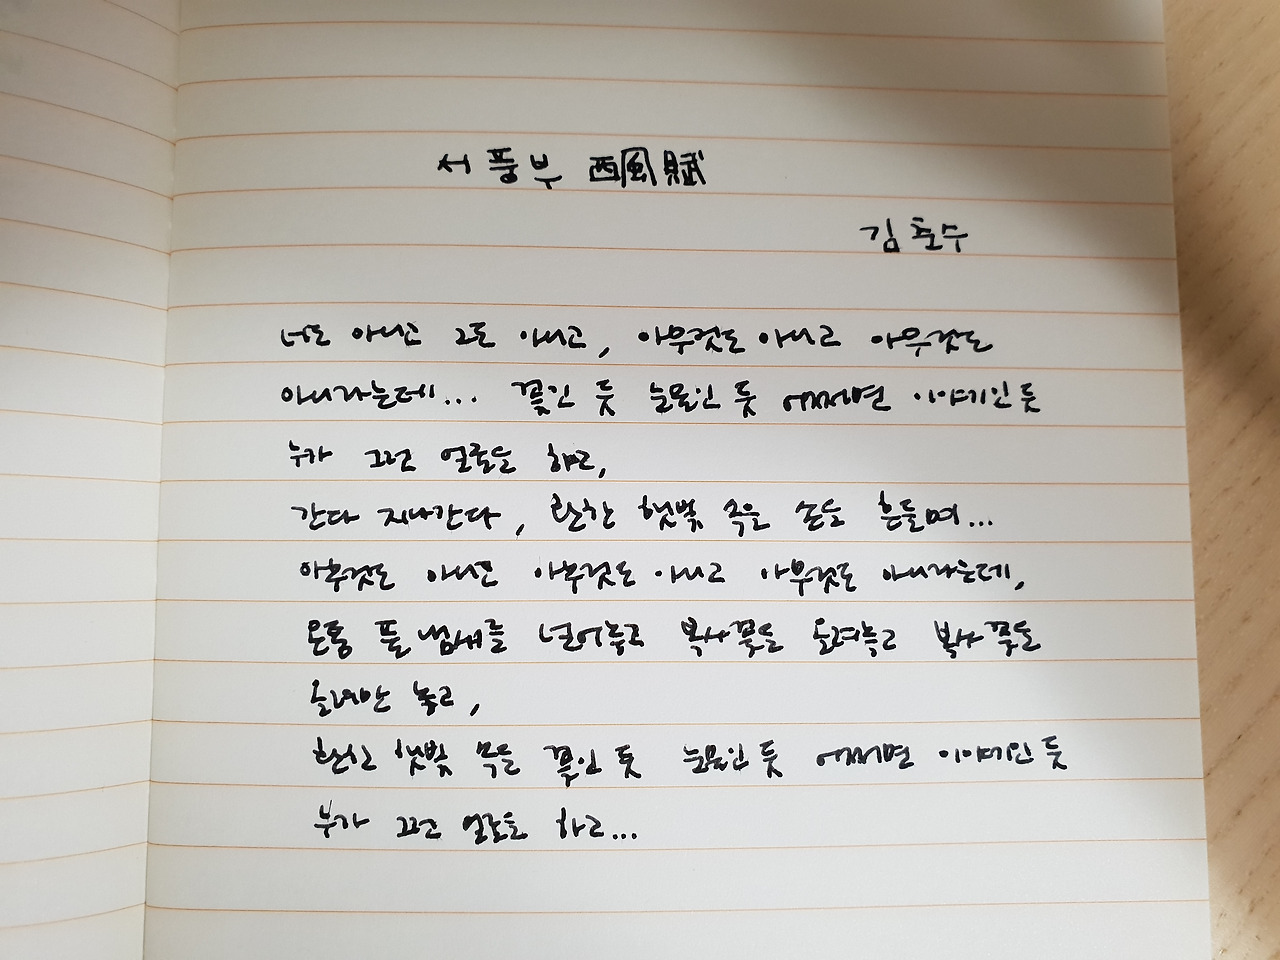 서풍부 西風賦
김춘수
너도 아니고 그도 아니고, 아무것도 아니고 아무것도
아니라는데... 꽃인 듯 눈물인 듯 어쩌면 이야기인 듯
누가 그런 얼굴을 하고,
간다 지나간다, 환한 햇빛 속을 손을 흔들며...
아무것도 아니고 아무것도 아니고 아무것도 아니라는데,
온통 풀냄새를 널어놓고 복사꽃을 올려놓고 복사꽃을
올려만 놓고,
환한 햇빛 속을 꽃인 듯 눈물인 듯 어쩌면 이야기인 듯
누가 그런 얼굴을 하고...